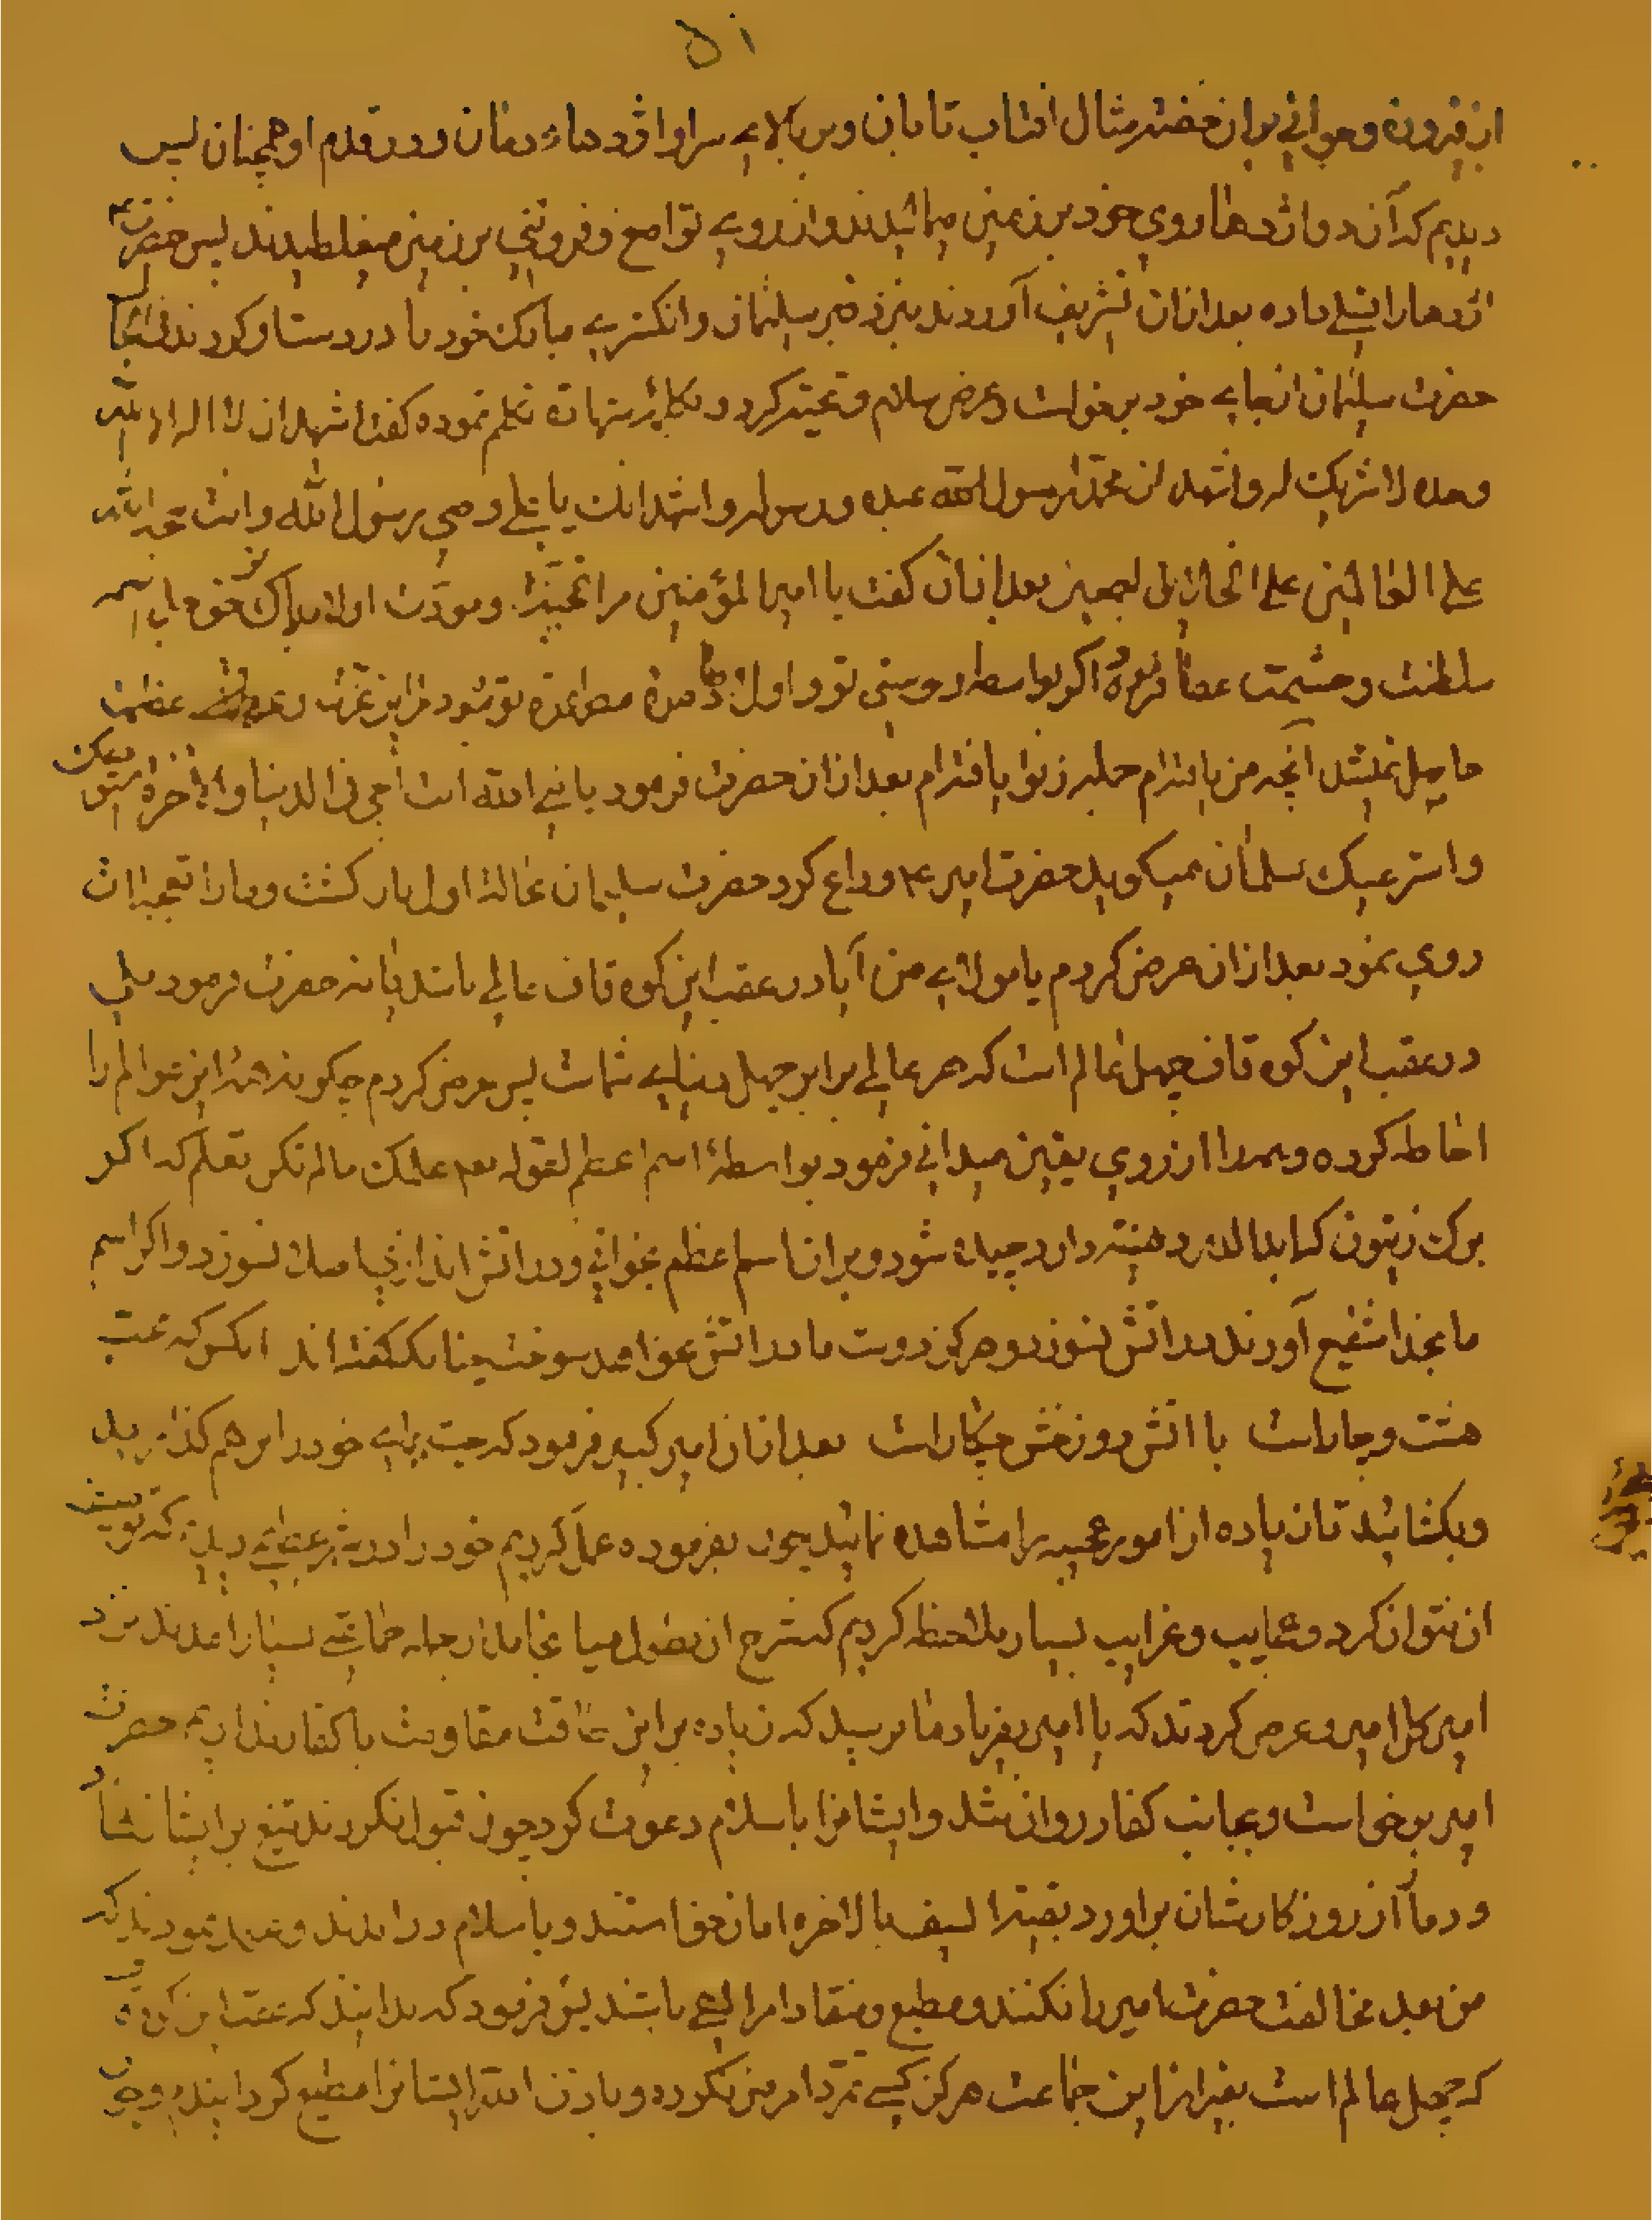 ۵۱
از فیروزه و جوانی بران خفته مثال افتاب تابان و بر بالای سر او اژدهاء دمان و در قدم او همچنان پس
دیدیم که آن دو اژدها روی خود بر زمین میمالیدند و از روی تواضع و فروتنی بر زمین میغلطیدند پس حضرت
اژدها را تسلی داده بعد ازان تشریف آوردند بنزد قبر سلیمان و انکشتری مبارک خود را در دست او کردند
حضرت سلیمان از جای خود برخواست و عرض سلام و تحیت کرد و بکلمۀ شهادة تکلم نموده کفت اشهد ان لا اله الا الله
وحده لا شریک له و اشهد ان محمدا رسول الله عبده و رسوله و اشهد انک یا علی وصی رسول الله و انت حجة الله
علی العالمین علی الخلایق اجمعین بعد ازان کفت یا امیر المؤمنین مرا محبت و مودت اولاد پاک تو
سلطنت و حشمت عطا فرموده اکر بواسطه دوستی تو و اولاد تو
حاصل نمیشد آنچه من یافته‌ام جمله ز تو یافته‌ام بعد ازان حضرت فرمود یا نبی الله انت اخی فی الدنیا و الاخره
سلمان میکوید حضرت امیر ع وداع کرد حضرت سلیمان بحالت اول باز کشت و ما را تعجب ازان
روی نمود بعد ازان عرض کردم یا مولای من آیا در عقب این کوه قاف عالمی باشد یا نه حضرت فرمود بلی
در عقب این کوه قاف چهل عالم است که هر عالمی برابر چهل دنیای شماست پس عرض کردم چکونه همه این عوالم را
احاطه کرده و همه را از روی یقین میدانی فرمود بواسطۀ اسم اعظم لقوله علمک ما لم تکن تعلم که اکر
برک زیتون چیده شود و بران اسم اعظم بخوانی و در اتش اندازی اصلا نسوزد و اکر اسم
ما بخدا شفیع آورند در اتش نسوزد و هرکز دوست ما در اتش نخواهد سوخت چنانکه کفته‌اند انکس که محب
هشت و چاراست با اتش دوزخش چکاراست بعد ازان امیر کبیر فرمود که چشمهای خود را بر هم کذارید
و بکشائید تا زیاده از امور عجیبه را مشاهده نمائید چون بفرموده عمل کردیم خود را در شهر عظیمی دیدیم که توصیف
ان نتوان کرد و عجایب و غرایب بسیار ملاحظه کردیم که شرح ان بطول میانجامد ازجمله جماعتی بسیار امدند نزد
امیر کل امیر و عرض کردند که یا امیر بفریاد ما برسید که زیاده بر این طاقت مقاومت با کفار نداریم حضرت
امیر برخواست و بجانب کفار روان شد و ایشانرا باسلام دعوت کرد چون قبول نکردند تیغ بر ایشان نهاد
و دمار از روزکارشان براورد بقیة السیف بالاخره امان خواستند و باسلام درامدند و عهد نمودند که
من بعد مخالفت حضرت امیر را نکنند و مطیع و منقاد امر الهی باشند پس فرمود که بدانید که عقب این کوه قاف
که چهل عالم است بغیر از این جماعت هرکز کسی تمرد امر من نکرده و باذن الله ایشانرا مطیع کردانیدم و چون